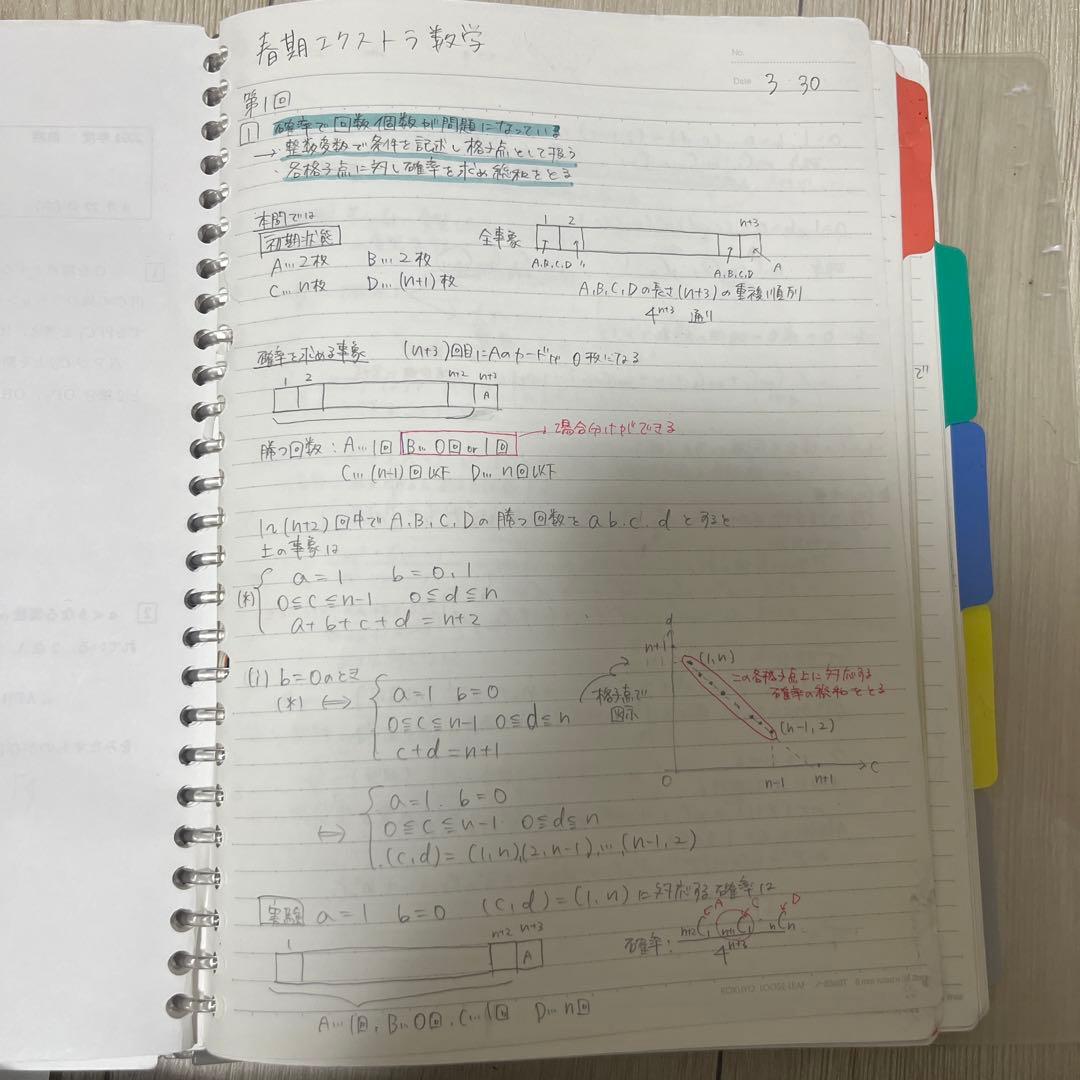 春期エクストラ数学
No.
Date 3 30
第1回
1 確率で回数、個数が問題になっている
→・整数変数で条件を記述し格子点として扱う
・各格子点に対し確率を求め総和をとる
本問では
初期状態
A…2枚 B…2枚
C…n枚 D…(n+1)枚
全事象
1 2 n+3
A,B,C,D 〃 A,B,C,D A
A,B,C,Dの長さ(n+3)の重複順列
4^{n+3} 通り
確率を求める事象 (n+3)回目にAのカードが0枚になる
1 2 n+2 n+3
A
勝つ回数:A…1回 B…0回 or 1回 →場合分けができる
C…(n-1)回以下 D…n回以下
(n+2)回中でA,B,C,Dの勝つ回数をa,b,c,dとすると
上の事象は
(*) { a=1 b=0,1
0≦c≦n-1 0≦d≦n
a+b+c+d=n+2
(i) b=0のとき
(*) ⇔ { a=1 b=0
0≦c≦n-1 0≦d≦n
c+d=n+1
格子点で
図示
d
n+1
(1,n)
この各格子点上に対応する
確率の総和をとる
(n-1,2)
0 n-1 n+1 c
⇔ { a=1. b=0
0≦c≦n-1 0≦d≦n
(c,d)=(1,n),(2,n-1),…(n-1,2)
実験 a=1 b=0 (c,d)=(1,n)に対応する確率は
1 n+2 n+3
A
A C D
確率: {}_{n+2}C_1 {}_{n+1}C_1 · {}_nC_n / 4^{n+3}
A…1回, B…0回, C…1回 D…n回
KOKUYO LOOSE-LEAF